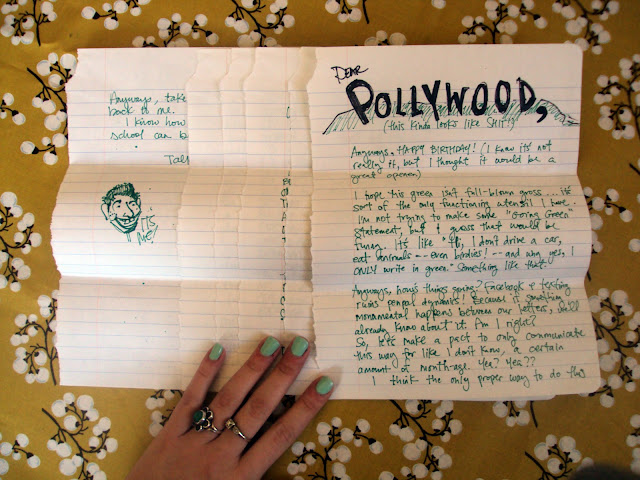 Anyways, take
back to me.
I know how
school can be
Talk
IT'S
ME!
DEAR
POLLYWOOD,
(this kinda looks like SHIT!)
Anyways, HAPPY BIRTHDAY! (I know it's not
really it, but I thought it would be a
great opener)
I hope this green isn't full-blown gross... it's
sort of the only functioning utensil I have.
I'm not trying to make some "Going Green"
statement, but I guess that would be
funny. It's like "Hi, I don't drive a car,
eat animals -- even birdies! -- and why yes, I
ONLY write in green." Something like that.
Anyways, how's things going? Facebook & texting
ruins penpal dynamics! Because if something
monumental happens between our letters, we'll
already know about it. Am I right?
So, let's make a pact to only communicate
this way for like I don't know, a certain
amount of month-age. Yea? Yea??
I think the only proper way to do this